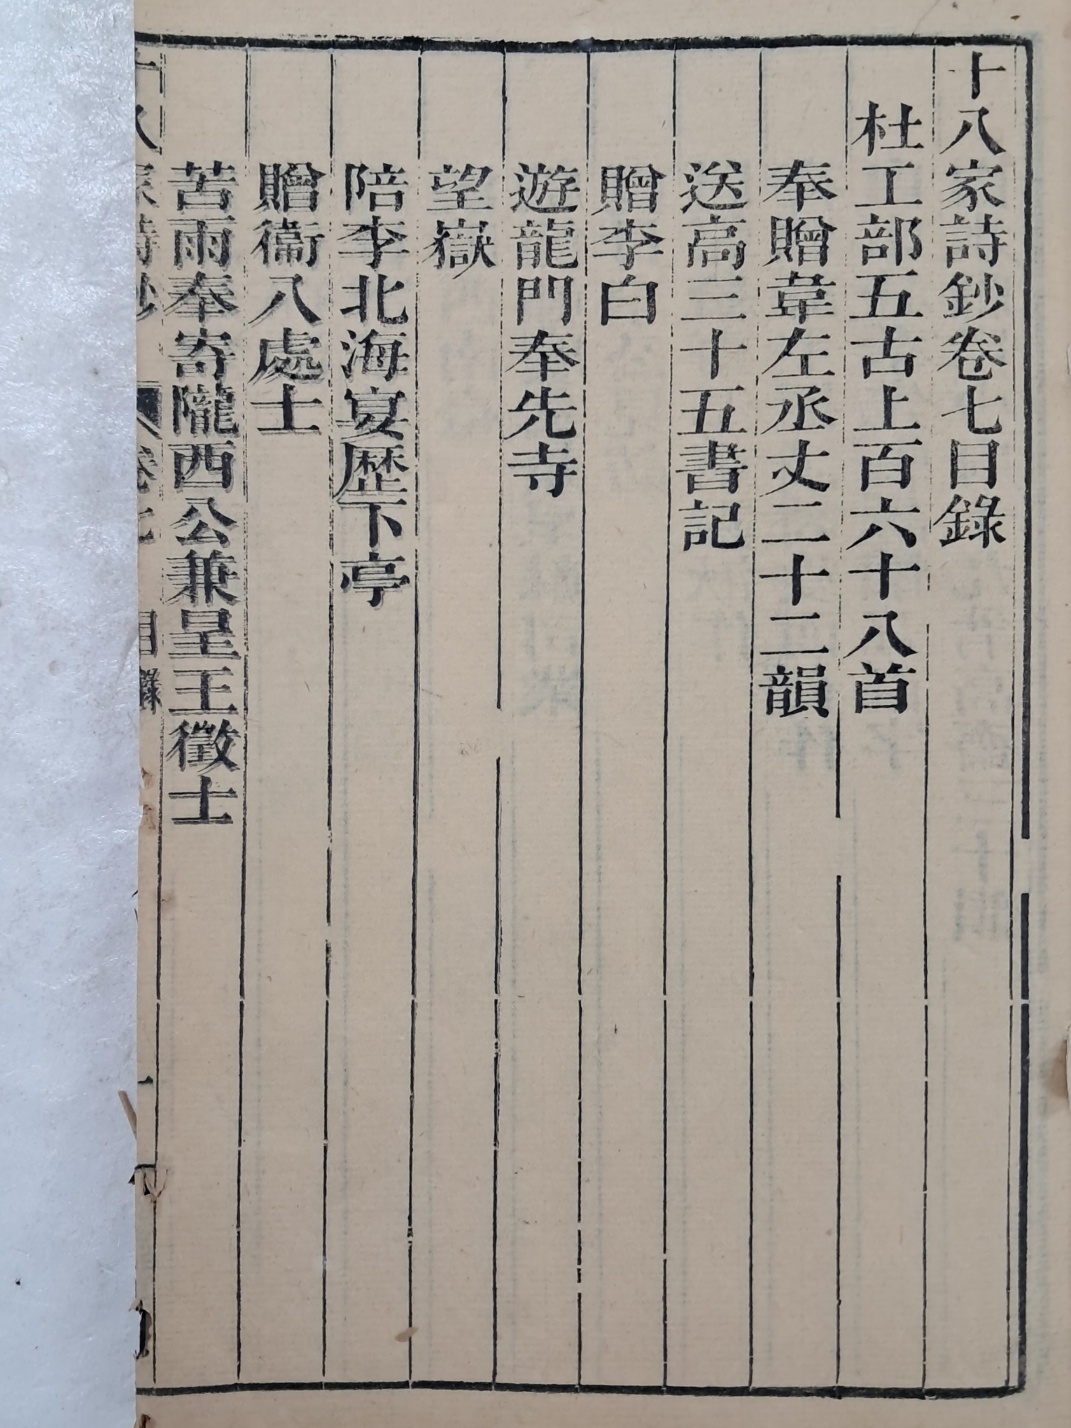 十八家詩鈔卷七目錄
杜工部五古上百六十八首
奉贈韋左丞丈二十二韻
送高三十五書記
贈李白
遊龍門奉先寺
望嶽
陪李北海宴歷下亭
贈衞八處士
苦雨奉寄隴西公兼呈王徵士